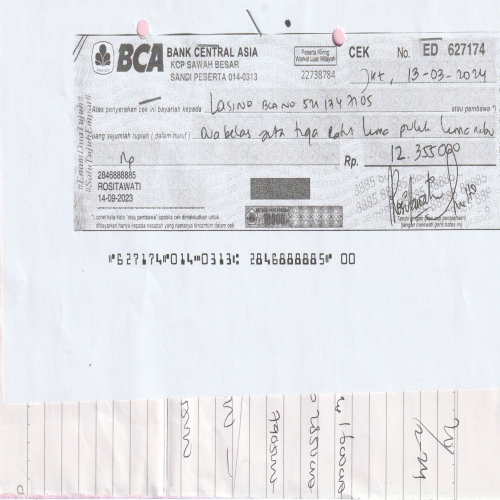 BCA BANK CENTRAL ASIA
KCP SAWAH BESAR
SANDI PESERTA 014-0313
Peserta Kliring
Warkat Luar Wilayah
22738784
CEK No. ED 627174
Jkt, 13-03-2024
Atas penyerahan cek ini bayarlah kepada Lasino BCA NO 5211347105 atau pembawa *)
uang sejumlah rupiah (dalam huruf) dua belas juta tiga ratus lima puluh lima ribu
Rp. 12.355.000
2846888885
ROSITAWATI
14-09-2023
#SatuTujuhEmpat#
*) coret kata-kata "atau pembawa" apabila cek dimaksudkan untuk
dibayarkan hanya kepada nasabah yang namanya tercantum dalam cek
Rositawati
⑈627174⑈014⑉0313⑆ 2846888885⑈ 00